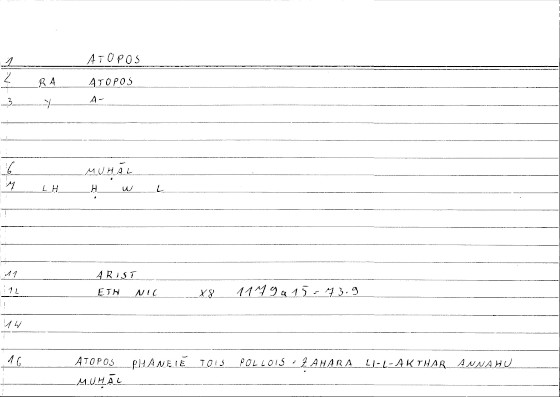 1 ATOPOS
2 RA ATOPOS
3 Y A-
6 MUḤĀL
7 LH Ḥ W L
11 ARIST
12 ETH NIC X8 1179a15 = 73.9
14
16 ATOPOS PHANEIĒ TOIS POLLOIS = ẒAHARA LI-L-AKTHAR ANNAHU
MUḤĀL